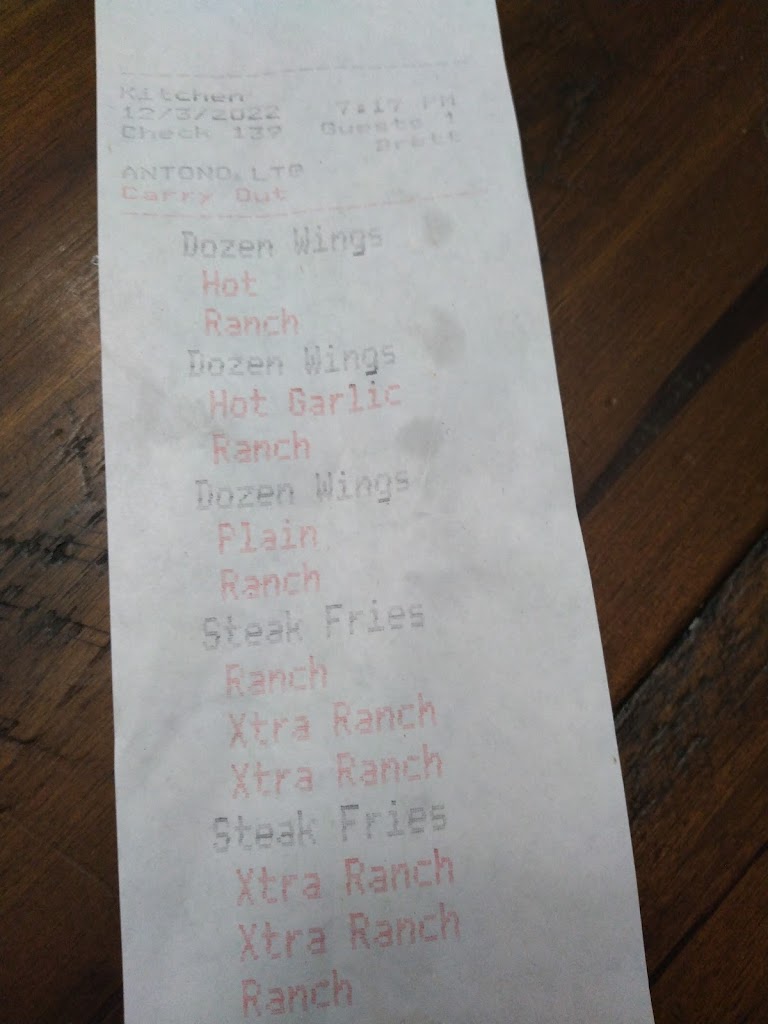 Kitchen
12/3/2022 7:17 PM
Check 139 Guests 1
Brett
ANTONO.LT@
Carry Out
Dozen Wings
Hot
Ranch
Dozen Wings
Hot Garlic
Ranch
Dozen Wings
Plain
Ranch
Steak Fries
Ranch
Xtra Ranch
Xtra Ranch
Steak Fries
Xtra Ranch
Xtra Ranch
Ranch